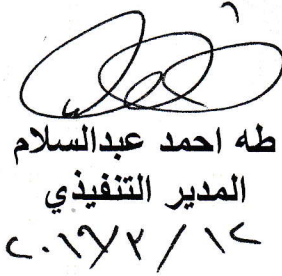 طه احمد عبدالسلام
المدير التنفيذي
٢٠١٧/٢/١٢